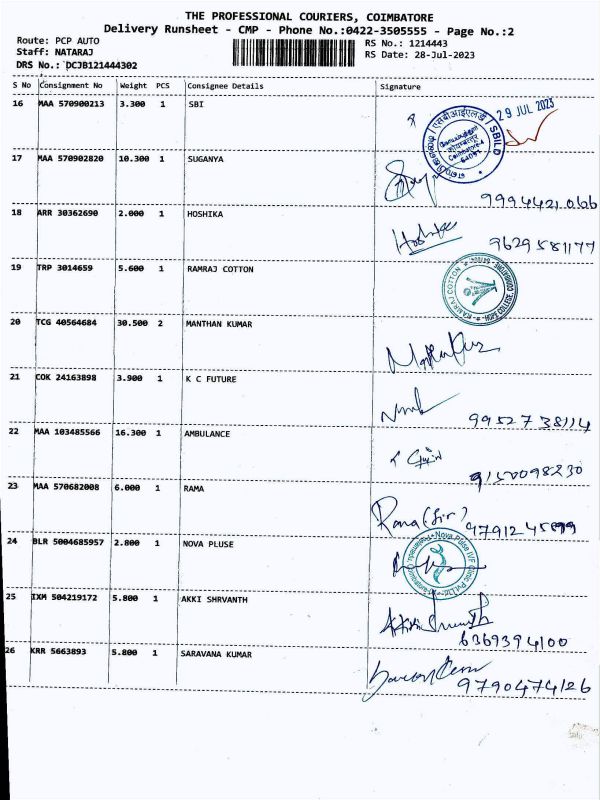 THE PROFESSIONAL COURIERS, COIMBATORE
Delivery Runsheet - CMP - Phone No.:0422-3505555 - Page No.:2
Route: PCP AUTO RS No.: 1214443
Staff: NATARAJ RS Date: 28-Jul-2023
DRS No.: DCJB121444302
S No Consignment No Weight PCS Consignee Details Signature
16 MAA 570900213 3.300 1 SBI 29 JUL 2023
17 MAA 570902820 10.300 1 SUGANYA
9994421066
18 ARR 30362690 2.000 1 HOSHIKA 9629581177
19 TRP 3014659 5.600 1 RAMRAJ COTTON
RAMRAJ COTTON
20 TCG 40564684 30.500 2 MANTHAN KUMAR
21 COK 24163898 3.900 1 K C FUTURE
9952738114
22 MAA 103485566 16.300 1 AMBULANCE
9150098230
23 MAA 570682008 6.000 1 RAMA
Rama (Sir)
24 BLR 5004685957 2.800 1 NOVA PLUSE
25 IXM 504219172 5.800 1 AKKI SHRVANTH
6369394100
26 KRR 5663893 5.800 1 SARAVANA KUMAR
9790474126